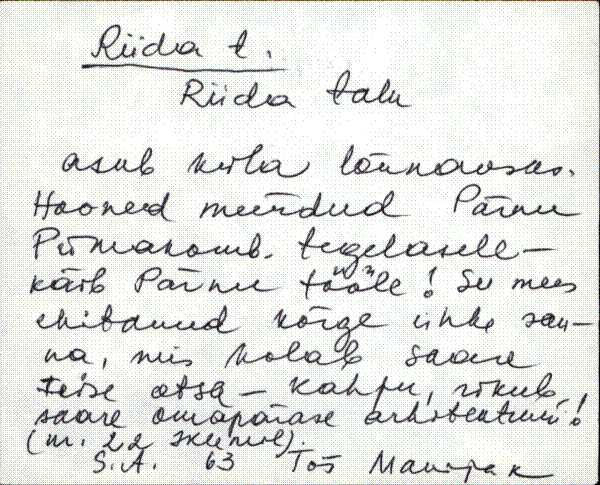 Riida t.
Riida talu
asub küla lõunaosas.
Hooned müüdud Pärnu
Piimakomb. tegelasele -
käib Pärnu tööle! See mees
ehitanud kõrge uhke sau-
na, mis kolab saare
teise otsa - kahju, rikub
saare omapärase arhitektuuri!
(nr. 22 skeemil).
S.A. 63